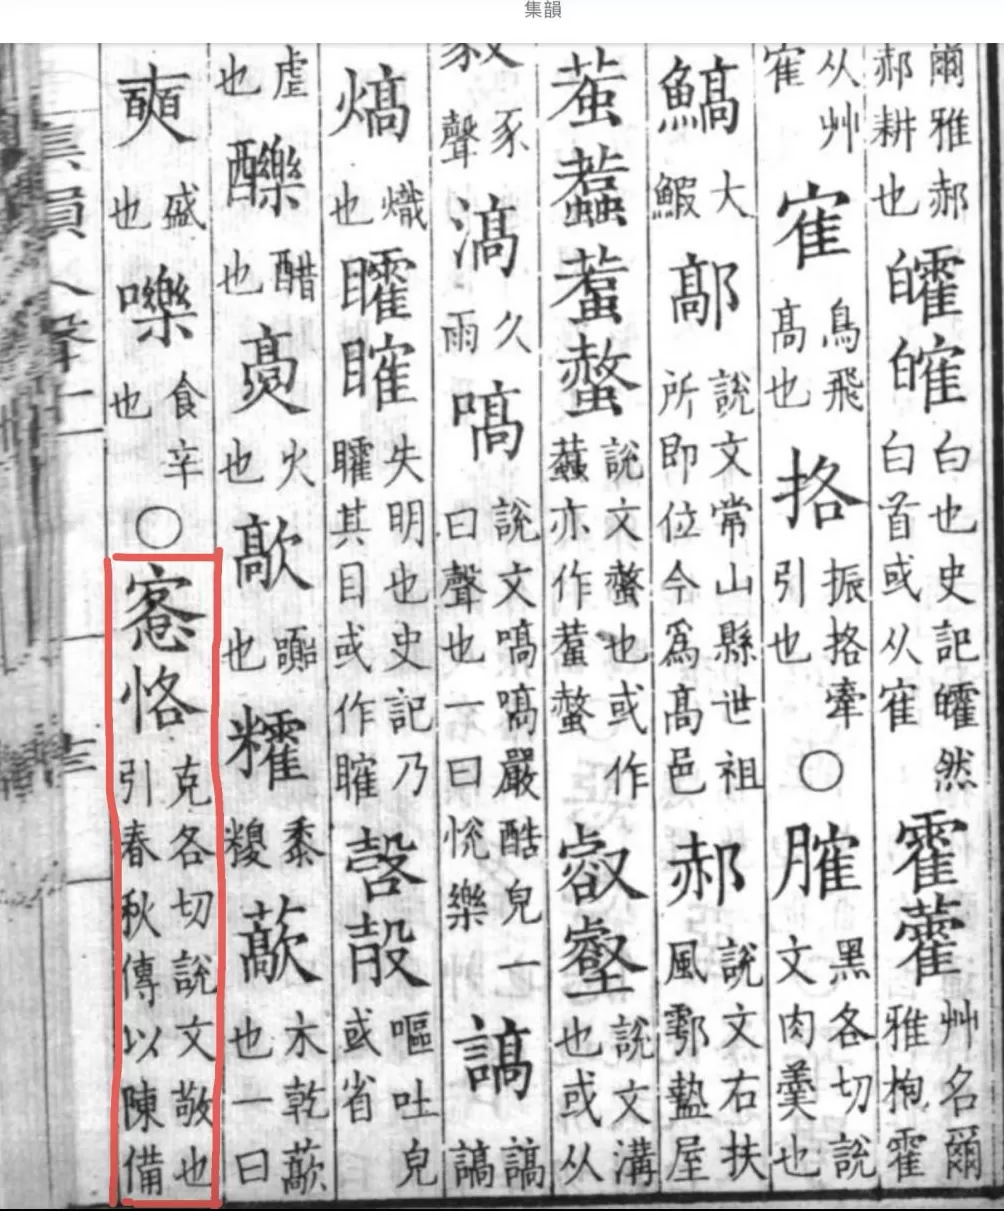 集韻
爾雅郝
郝耕也
皬㿥
白也史記皬然
白首或从隺
靃藿
艸名爾
雅枹靃
从艸
隺
隺
鳥飛
高也
挌
振挌牽
引也
○
臛
黑各切說
文肉羹也
鰝
大
鰕
鄗
說文常山縣世祖
所即位今爲高邑
郝
說文右扶
風鄠盩屋
說文螫也或作
蠚亦作蠚螫
叡壑
說文溝
也或从
豕
聲
滈
久
雨
嗃
說文嗃嗃嚴酷皃一
曰聲也一曰悦樂
謞
謞
謞
熇
熾
也
矐㬶
失明也史記乃
矐其目或作㬶
嗀
嘔吐皃
或省
虐
也
醋
也
火
也
歊
也
糴
黍
糉
藃
木乾藃
也一曰
奭
盛
也
嚛
食辛
也
○
愙恪
克各切說文敬也
引春秋傳以陳備